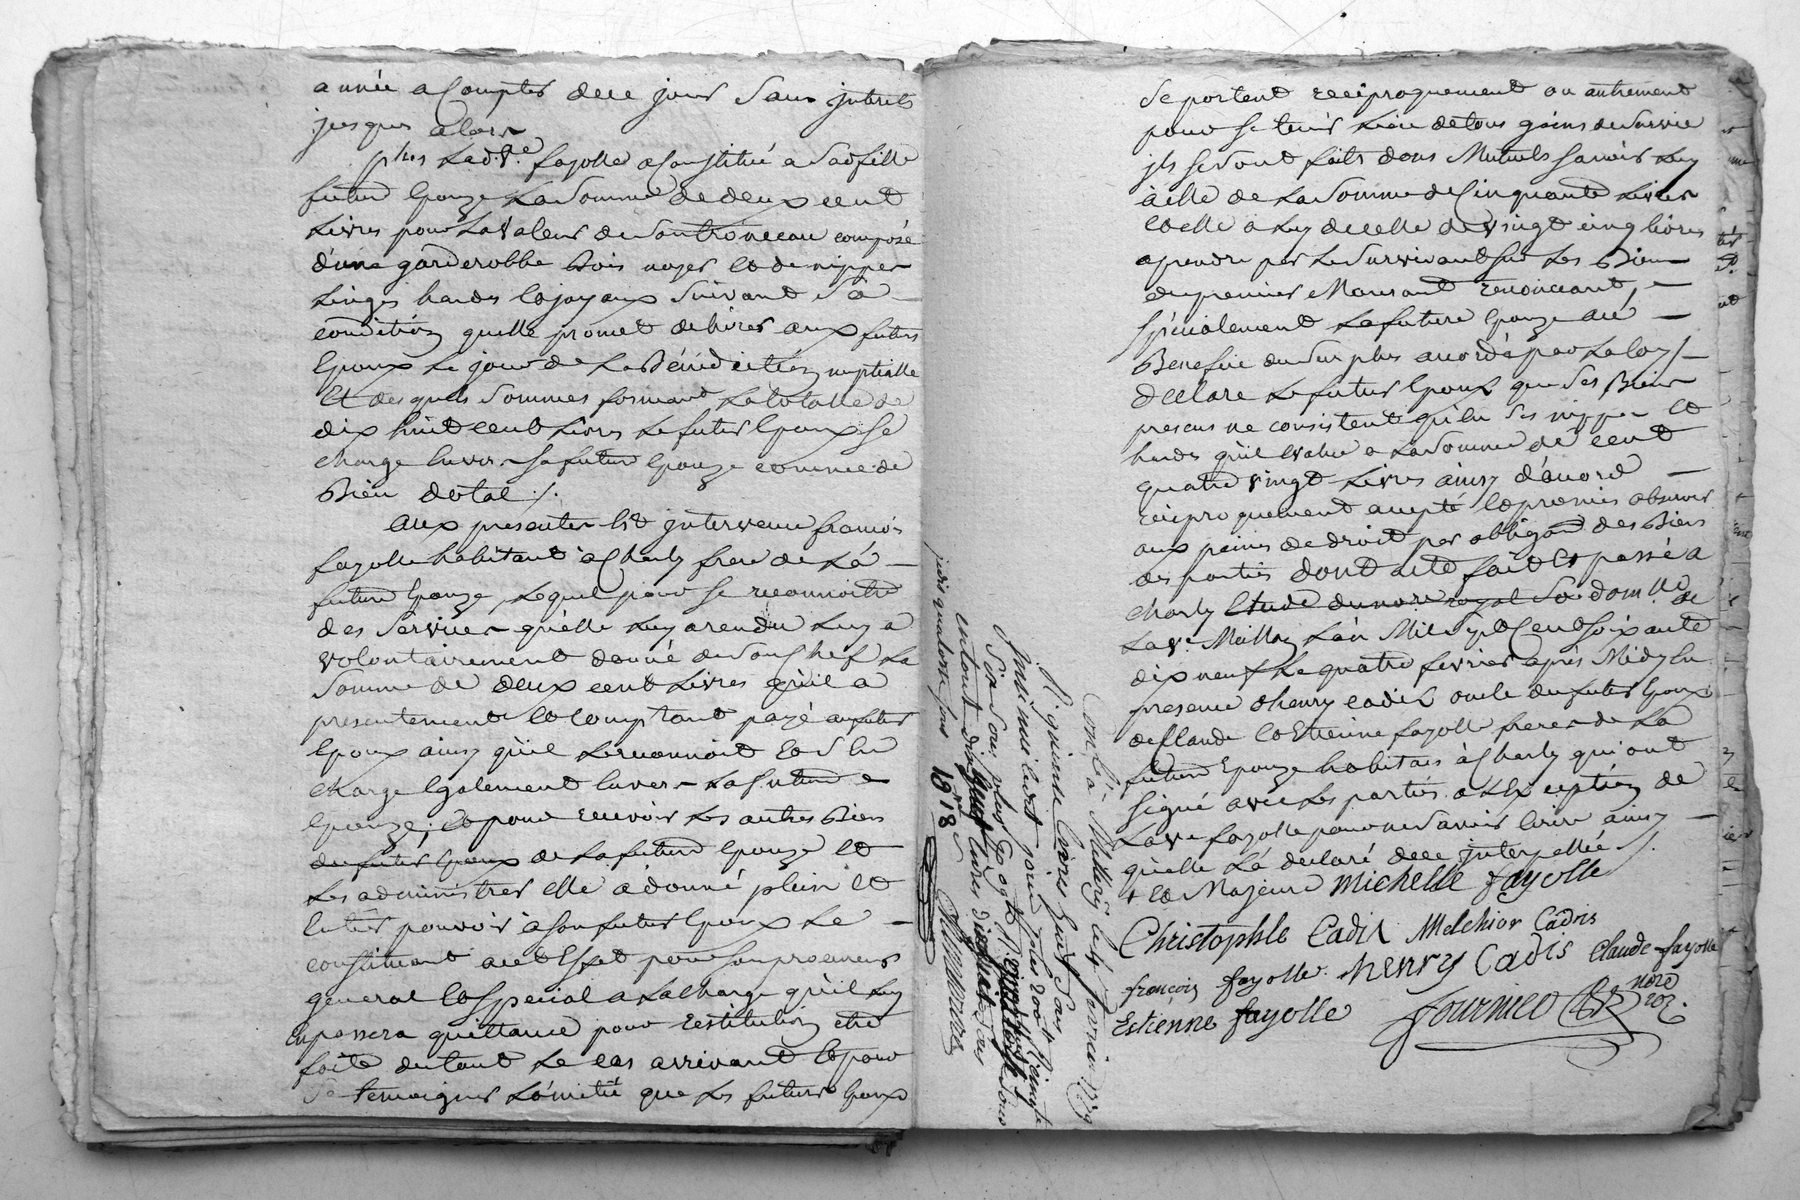 année a Compter dece jour Sans jnterets
jusques alors
plus Lad. ve. fayolle a Constitué a Sad fille
future Epouze La Somme de deux cent
Livres pour La Valeur de Son trousseau composé
d'une garderobbe bois noyer et de nippes
Linges hardes et joyaux Suivant Sa
condition quelle promet delivrer aux futurs
Epoux Le jour de La Bénédiction nuptialle
Et desquels Sommes formant La totalle de
dix huit cent Livres Le futur Epoux se
charge envers Sa future Epouze comme de
Bien dotal /.
aux presentes est jntervenu francois
fayolle habitant à Charly frere de La
future Epouze, Lequel pour se reconnoitre
des Services qu'elle Luy a rendu Luy a
volontairement donné de Son Chef La
Somme de deux cent Livres qu'il a
presentement et Comptant payé au futur
Epoux ainsy qu'il Le reconnoit et S'en
charge Egalement envers La future
Epouze; et pour recevoir Les autres Biens
du futur Epoux de La future Epouze et
Les administrer elle a donné plein et
Entier pouvoir à Son futur Epoux Le
constituant a cet Effet pour Son procureur
general et Special a La charge qu'il Luy
en passera quittance pour restitution etre
faite du tout Le cas arrivant et pour
Se temoigner L'amitié que Les futurs Epoux
Se portent reciproquement ou autrement
pour se tenir Lieu de tous gains de Survie
jls se sont faits dons Mutuels savoir Luy
à elle de La Somme de Cinquante Livres
et elle a Luy de celle de vingt cinq livres
a prendre par Le Survivant Sur Les Biens
du premier Mourant renonceant,
Specialement La future Epouze au
Benefice du Surplus accordé par La Loy /
Declare Le futur Epoux que Ses Biens
presens ne consistent qu'en Ses nippes et
hardes qu'il Evalue a La Somme de cent
quatre vingt Livres ainsy d'acord
reciproquement accepté et promis observer
aux peines de droit par obligaon des Biens
des parties dont acte fait et passé a
Charly Etude du nore royal Soe dom.lle de
La ve. Maillon L'an Mil Sept Cent Soixante
dix neuf Le quatre fevrier après Midy En
presence d'henry Cadis oncle du futur Epoux
de Claude et Etienne fayolle freres de La
future Epouze habitans à Charly qui ont
signé avec Les parties a L'Exception de
La ve fayolle pour ne Savoir Ecrire ainsy
qu'elle L'a declaré de ce jnterpellée /.
+ et Majeure Michelle fayolle
Christophle Cadis Melchior Cadis
francois fayolle. henry Cadis Claude fayolle
Estienne fayolle fournier nore roz.
Conlé à Millery le 4 fevrier 1779
R. quinze livres huit sous